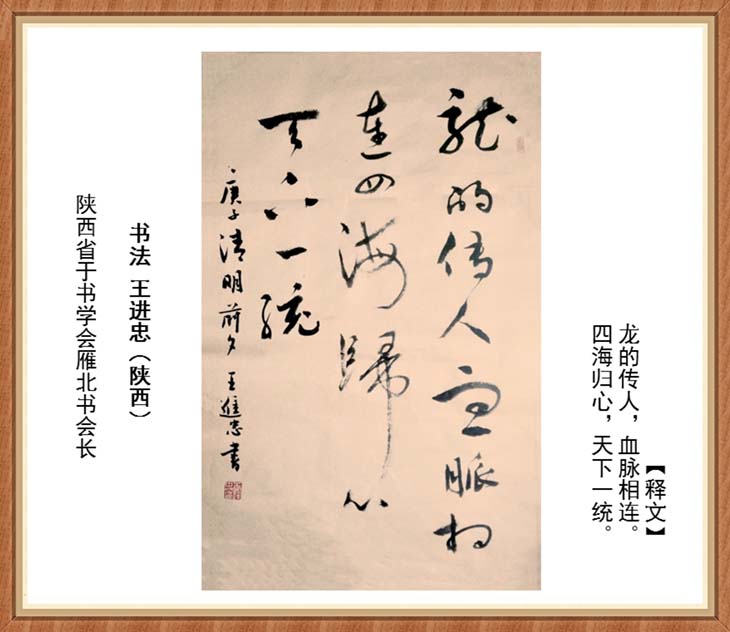 【释文】
龙的传人，血脉相连。
四海归心，天下一统。
龍的传人血脈相
连四海歸心
天下一统
庚子清明前夕王進忠書
书法 王进忠（陕西）
陕西省于书学会雁北书会长